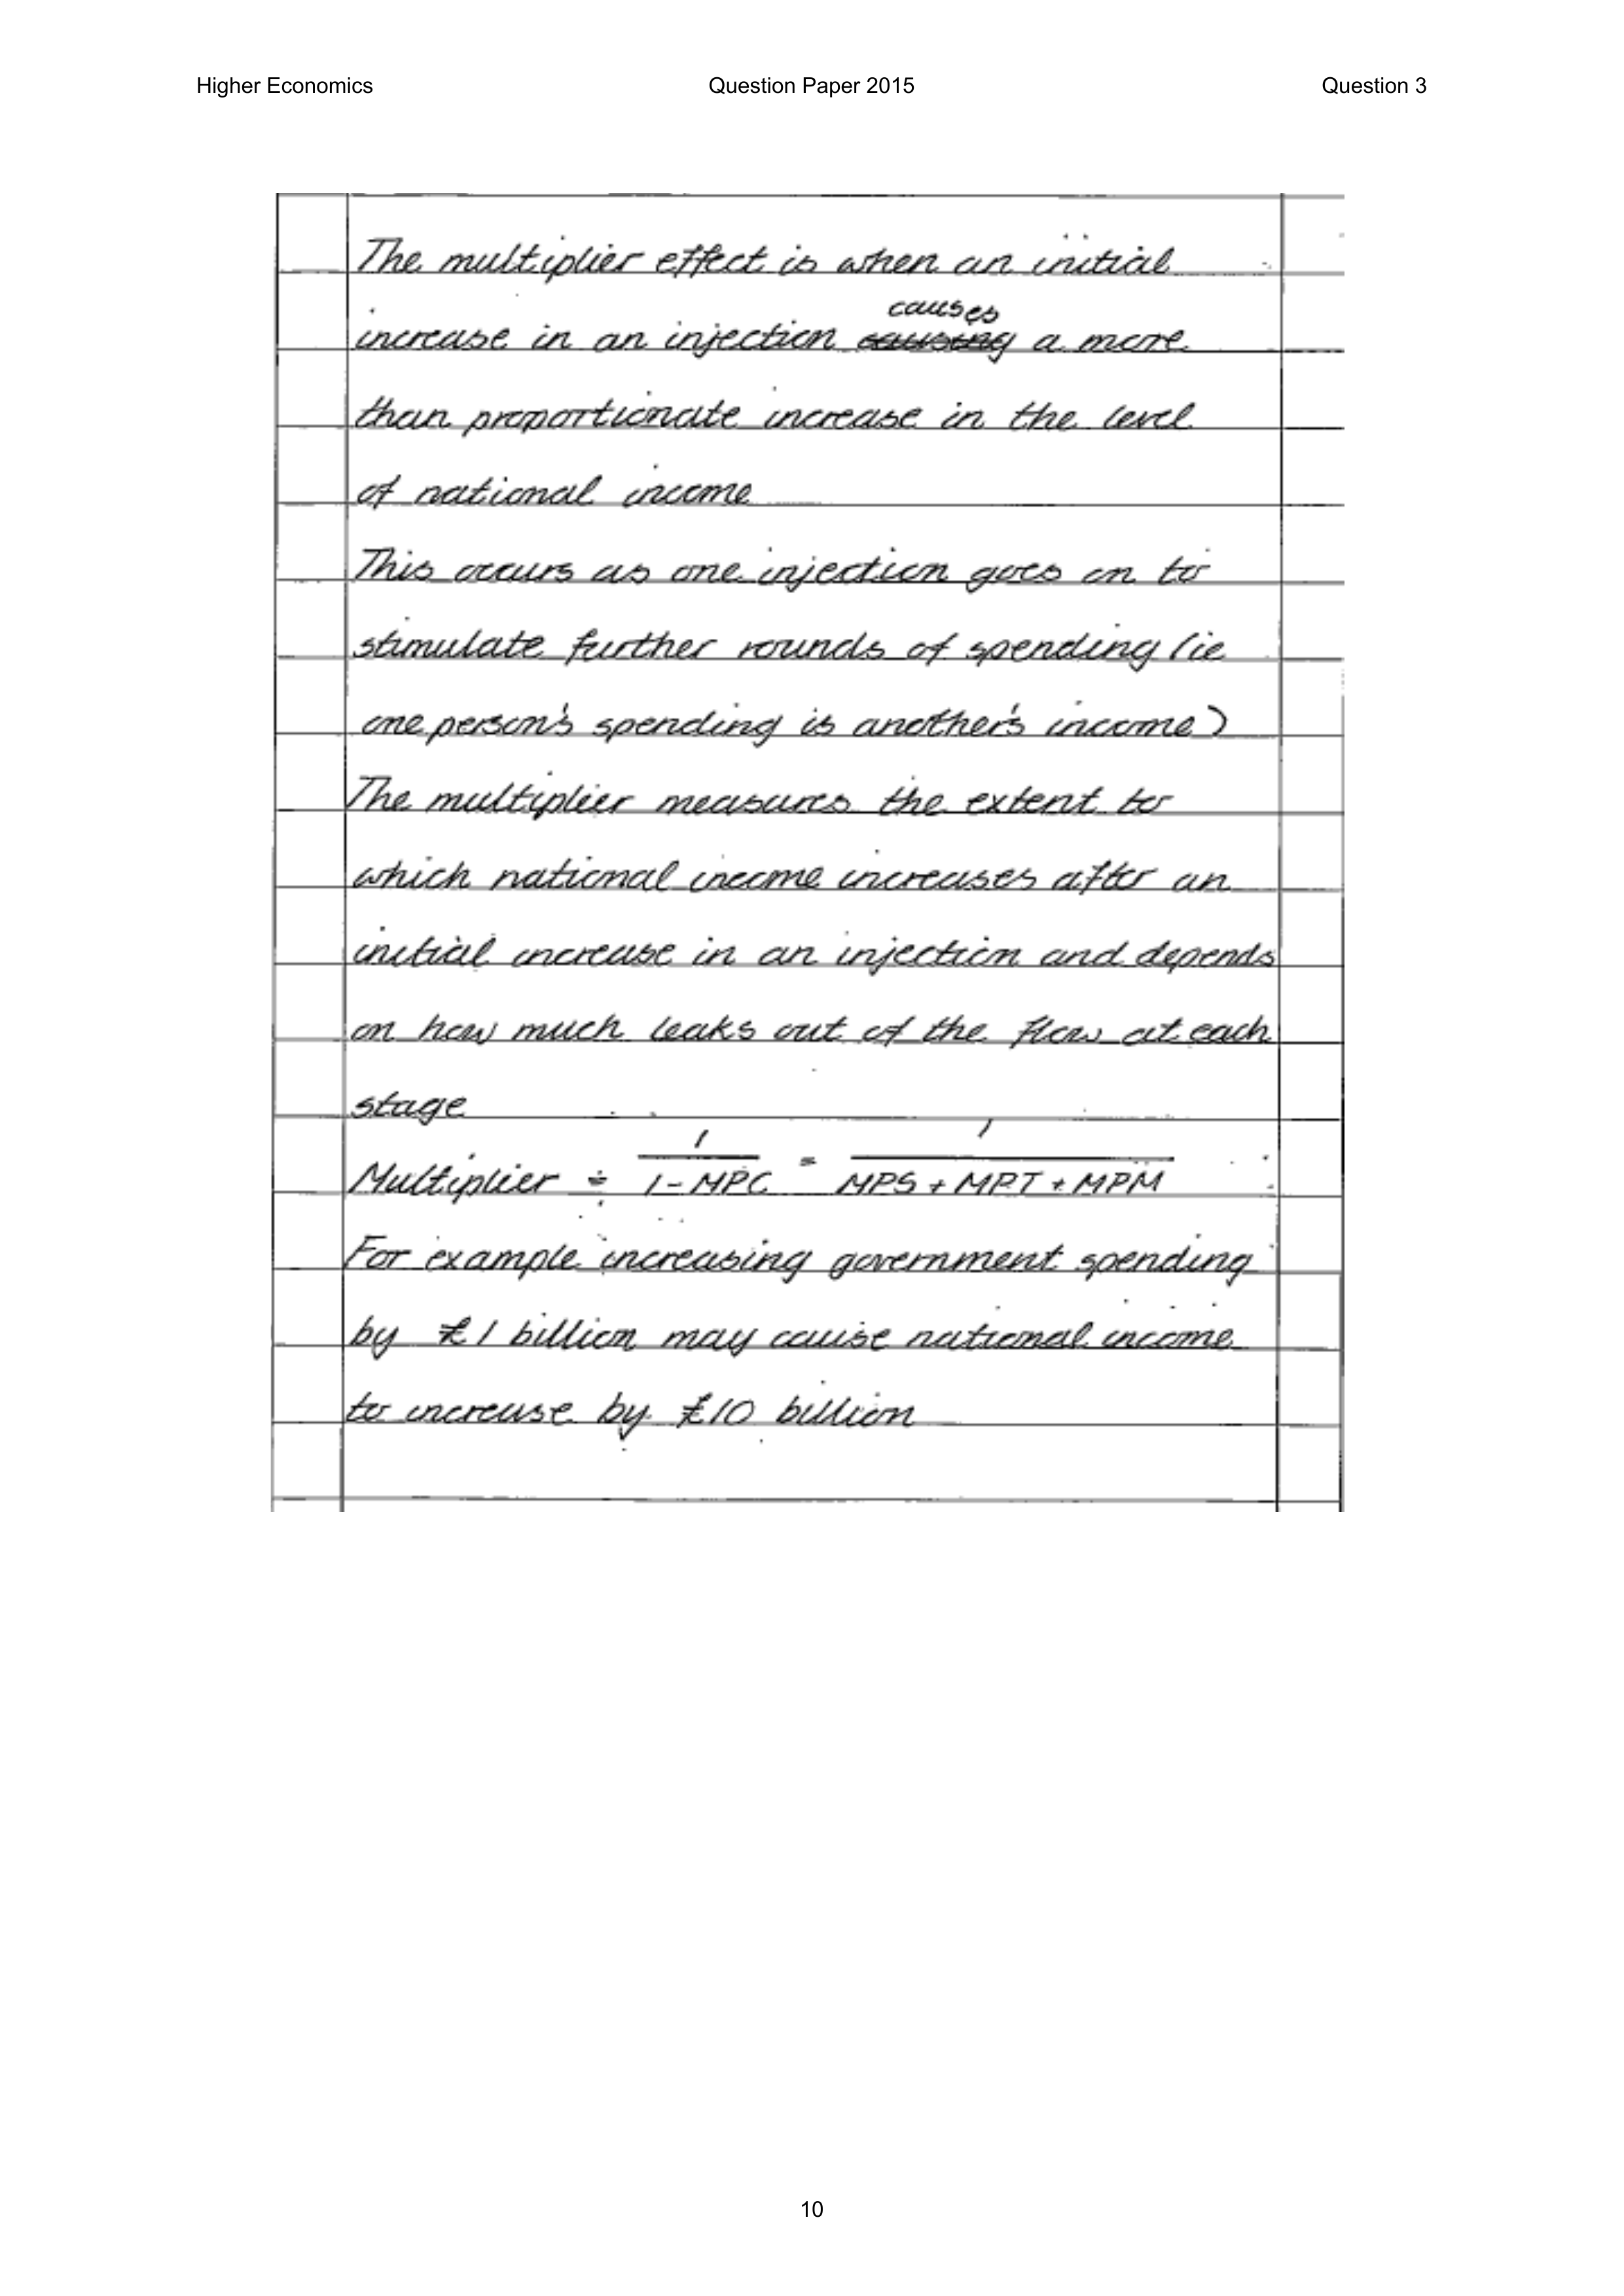 Higher Economics Question Paper 2015 Question 3
The multiplier effect is when an initial
causes
increase in an injection causing a more
than proportionate increase in the level
of national income
This occurs as one injection goes on to
stimulate further rounds of spending (ie
one person's spending is another's income)
The multiplier measures the extent to
which national income increases after an
initial increase in an injection and depends
on how much leaks out of the flow at each
stage
Multiplier = 1/(1-MPC) = 1/(MPS + MPT + MPM)
For example increasing government spending
by £1 billion may cause national income
to increase by £10 billion
10